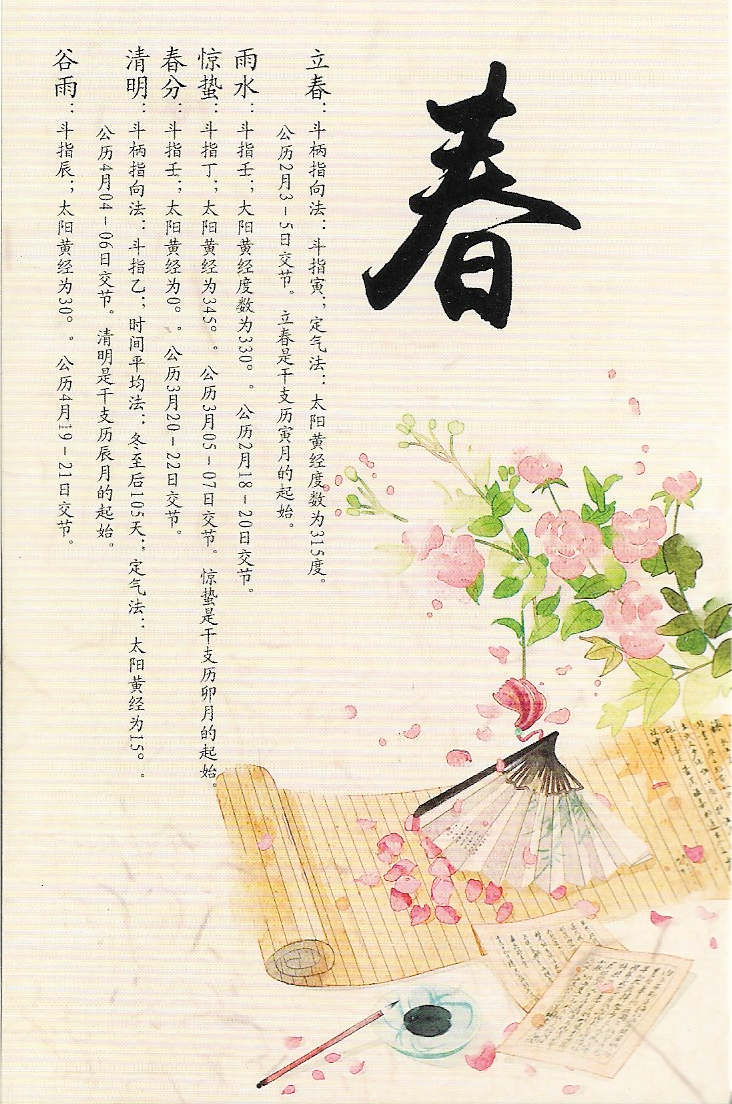 春
立春：斗柄指向法：斗指寅；定气法：太阳黄经度数为315度。
公历2月3－5日交节。立春是干支历寅月的起始。
雨水：斗指壬；大阳黄经度数为330°。公历2月18－20日交节。
惊蛰：斗指丁；太阳黄经为345°。公历3月05－07日交节。惊蛰是干支历卯月的起始。
春分：斗指壬；太阳黄经为0°。公历3月20－22日交节。
清明：斗柄指向法：斗指乙；时间平均法：冬至后105天；定气法：太阳黄经为15°。
公历4月04－06日交节。清明是干支历辰月的起始。
谷雨：斗指辰；太阳黄经为30°。公历4月19－21日交节。